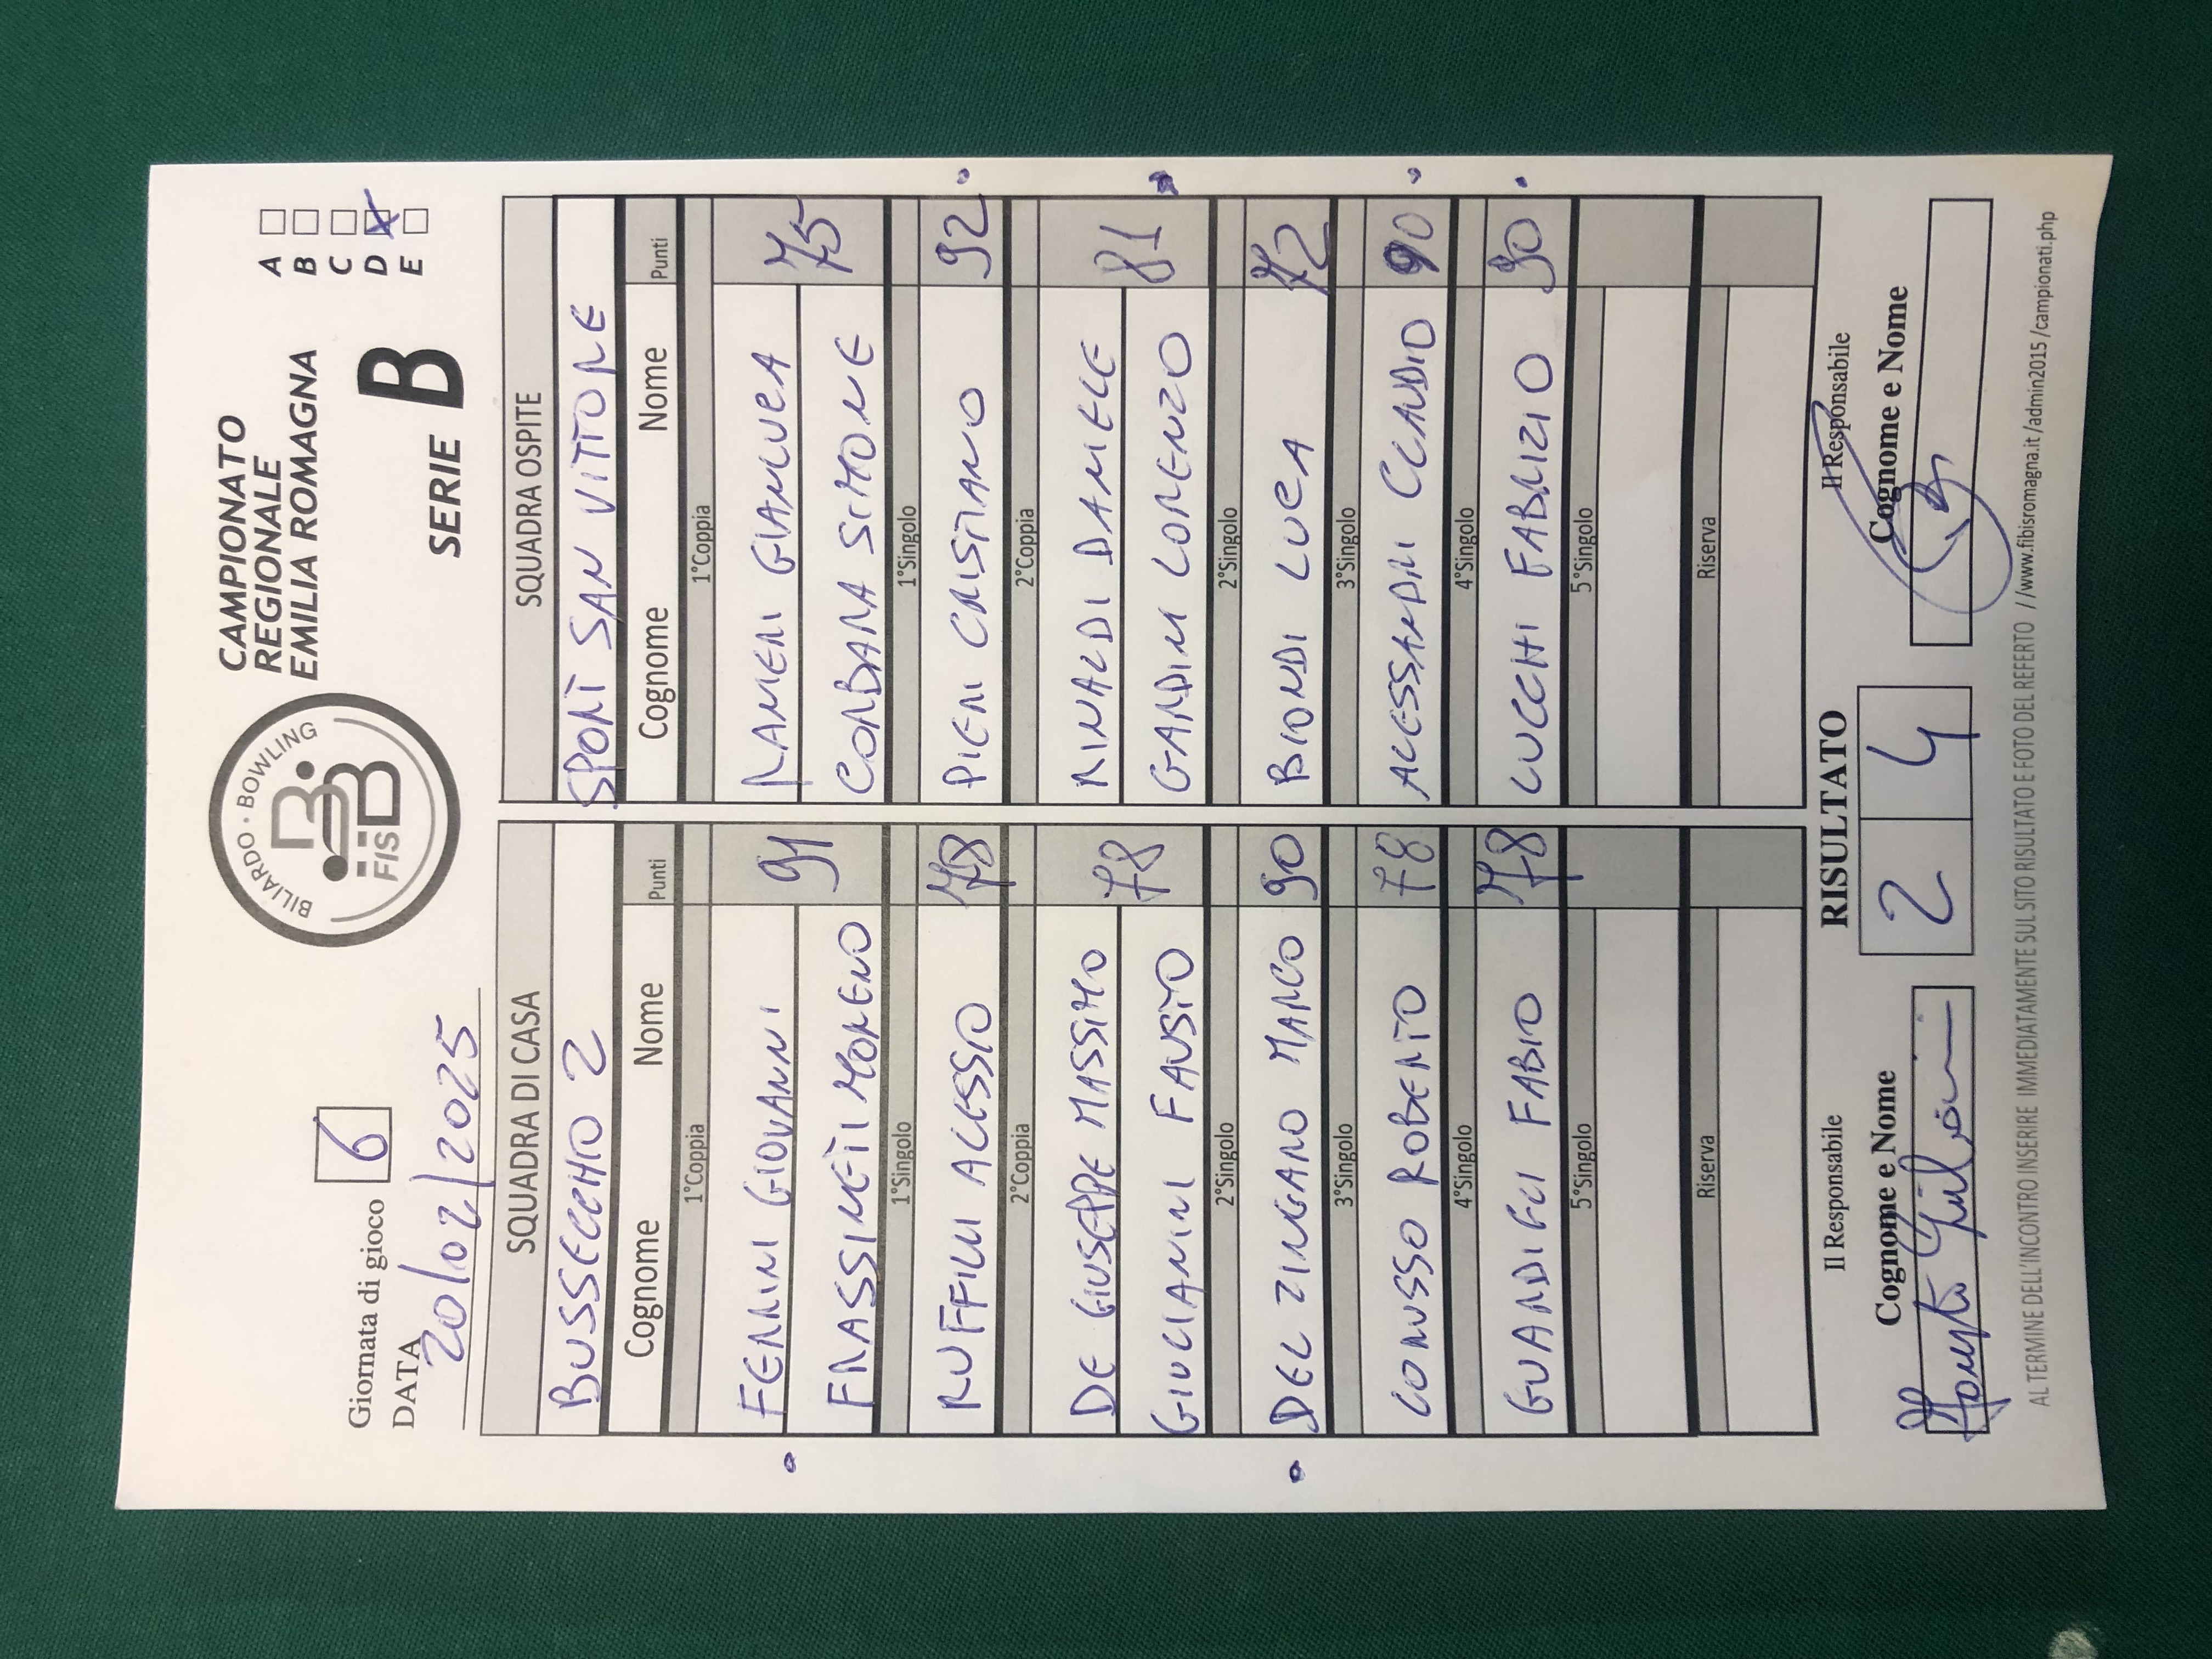 Giornata di gioco 6
DATA 20/02/2025
BILIARDO · BOWLING
FIS BB
CAMPIONATO
REGIONALE
EMILIA ROMAGNA
SERIE B
A
B
C
D X
E
SQUADRA DI CASA
BUSSECCHIO 2
Cognome Nome Punti
1°Coppia
FERRINI GIOVANNI
FRASSINETI MORENO 91
1°Singolo
RUFFILLI ALESSIO 78
2°Coppia
DE GIUSEPPE MASSIMO
GIULIANINI FAUSTO 78
2°Singolo
DEL ZINGARO MARCO 90
3°Singolo
CORUSSO ROBERTO 78
4°Singolo
GUARDIGLI FABIO 78
5°Singolo
Riserva
SQUADRA OSPITE
SPORT SAN VITTORE
Cognome Nome Punti
1°Coppia
RANIERI GIANLUCA
CORBARA SIMONE 75
1°Singolo
PIERI CRISTIANO 92
2°Coppia
RINALDI DANIELE
GARDINI LORENZO 81
2°Singolo
BIONDI LUCA 72
3°Singolo
ALESSANDRI CLAUDIO 90
4°Singolo
LUCCHI FABRIZIO 90
5°Singolo
Riserva
Il Responsabile
Cognome e Nome
RISULTATO
2 4
Il Responsabile
Cognome e Nome
AL TERMINE DELL'INCONTRO INSERIRE IMMEDIATAMENTE SUL SITO RISULTATO E FOTO DEL REFERTO //www.fibisromagna.it/admin2015/campionati.php